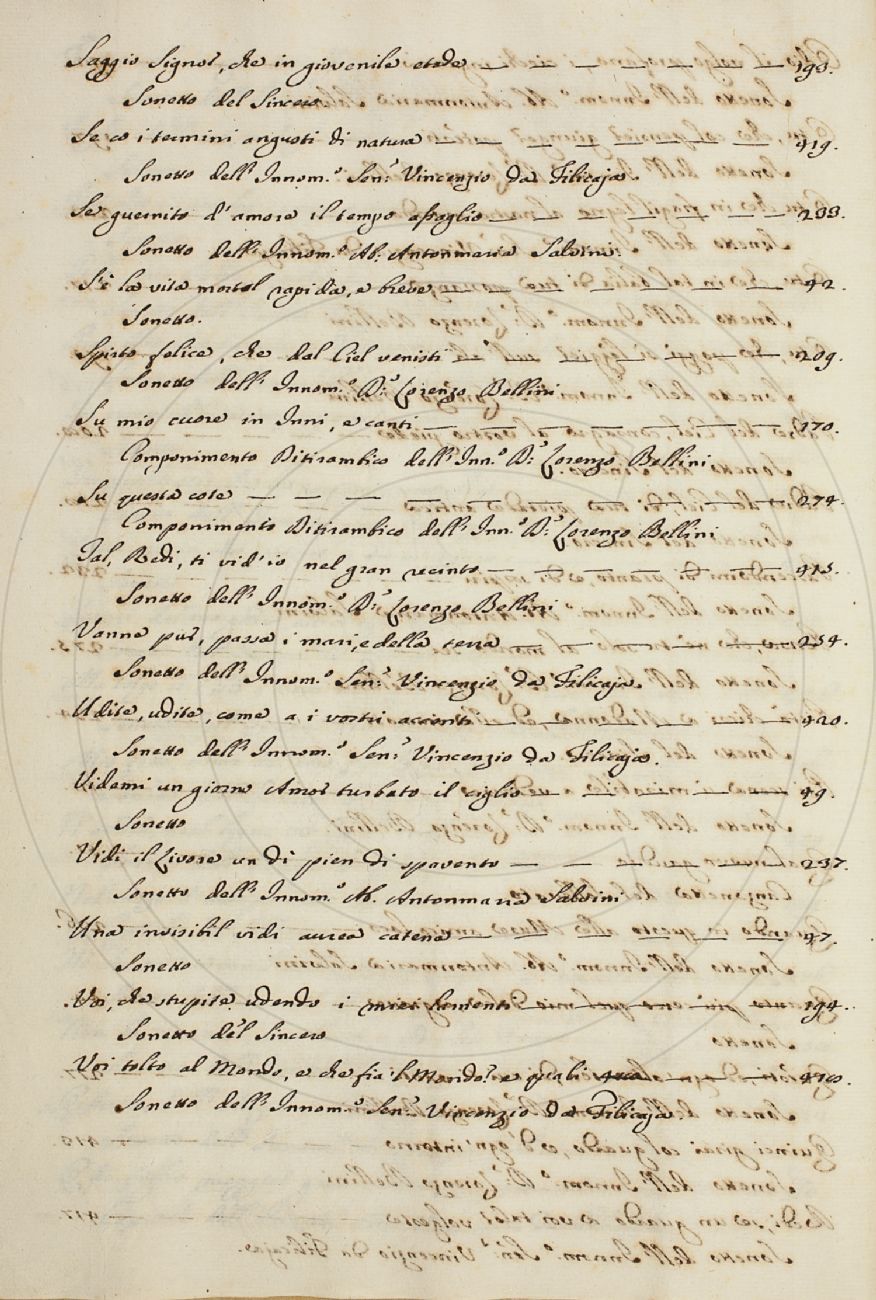 Saggio Signor, che in giovenile etade — — — 193.
Sonetto del Sincero
Se co i termini angusti di natura — — — 419.
Sonetto dell' Innom.º Sen.r Vincenzio da Filicaja.
Se guernito d'amore il tempo assaglio — — — 233.
Sonetto dell' Innom.º Ab. Antonmaria Salvini.
S'è la vita mortal rapida, e breve — — — 42.
Sonetto.
Spirto felice, che dal Ciel venisti — — — 209.
Sonetto dell' Innom.º D.r Lorenzo Bellini
Su mio cuore in Inni, e canti — — — 170.
Componimento Ditirambico dell' Inn.º D.r Lorenzo Bellini
Su questa cote — — — 274.
Componimento Ditirambico dell' Inn.º D.r Lorenzo Bellini
Tal, Redi, ti vid'io nel gran recinto — — — 413.
Sonetto dell' Innom.º D.r Lorenzo Bellini
Vanne pur, passa i mari, e della terra — — — 254.
Sonetto dell' Innom.º Sen.r Vincenzio da Filicaja.
Udite, udite, come a i vostri accenti — — — 420.
Sonetto dell' Innom.º Sen.r Vincenzio da Filicaja.
Videmi un giorno Amor turbato il ciglio — — — 49.
Sonetto
Vidi il Livore un dì pien di spavento — — — 237.
Sonetto dell' Innom.º Ab. Antonmaria Salvini
Una invisibil vidi aurea catena — — — 47.
Sonetto
Voi, che stupite udendo i miei — — — 194.
Sonetto del Sincero
Voi tolto al Mondo, e che fia'l Mondo? e quali — — — 418.
Sonetto dell' Innom.º Sen.r Vincenzio da Filicaja.